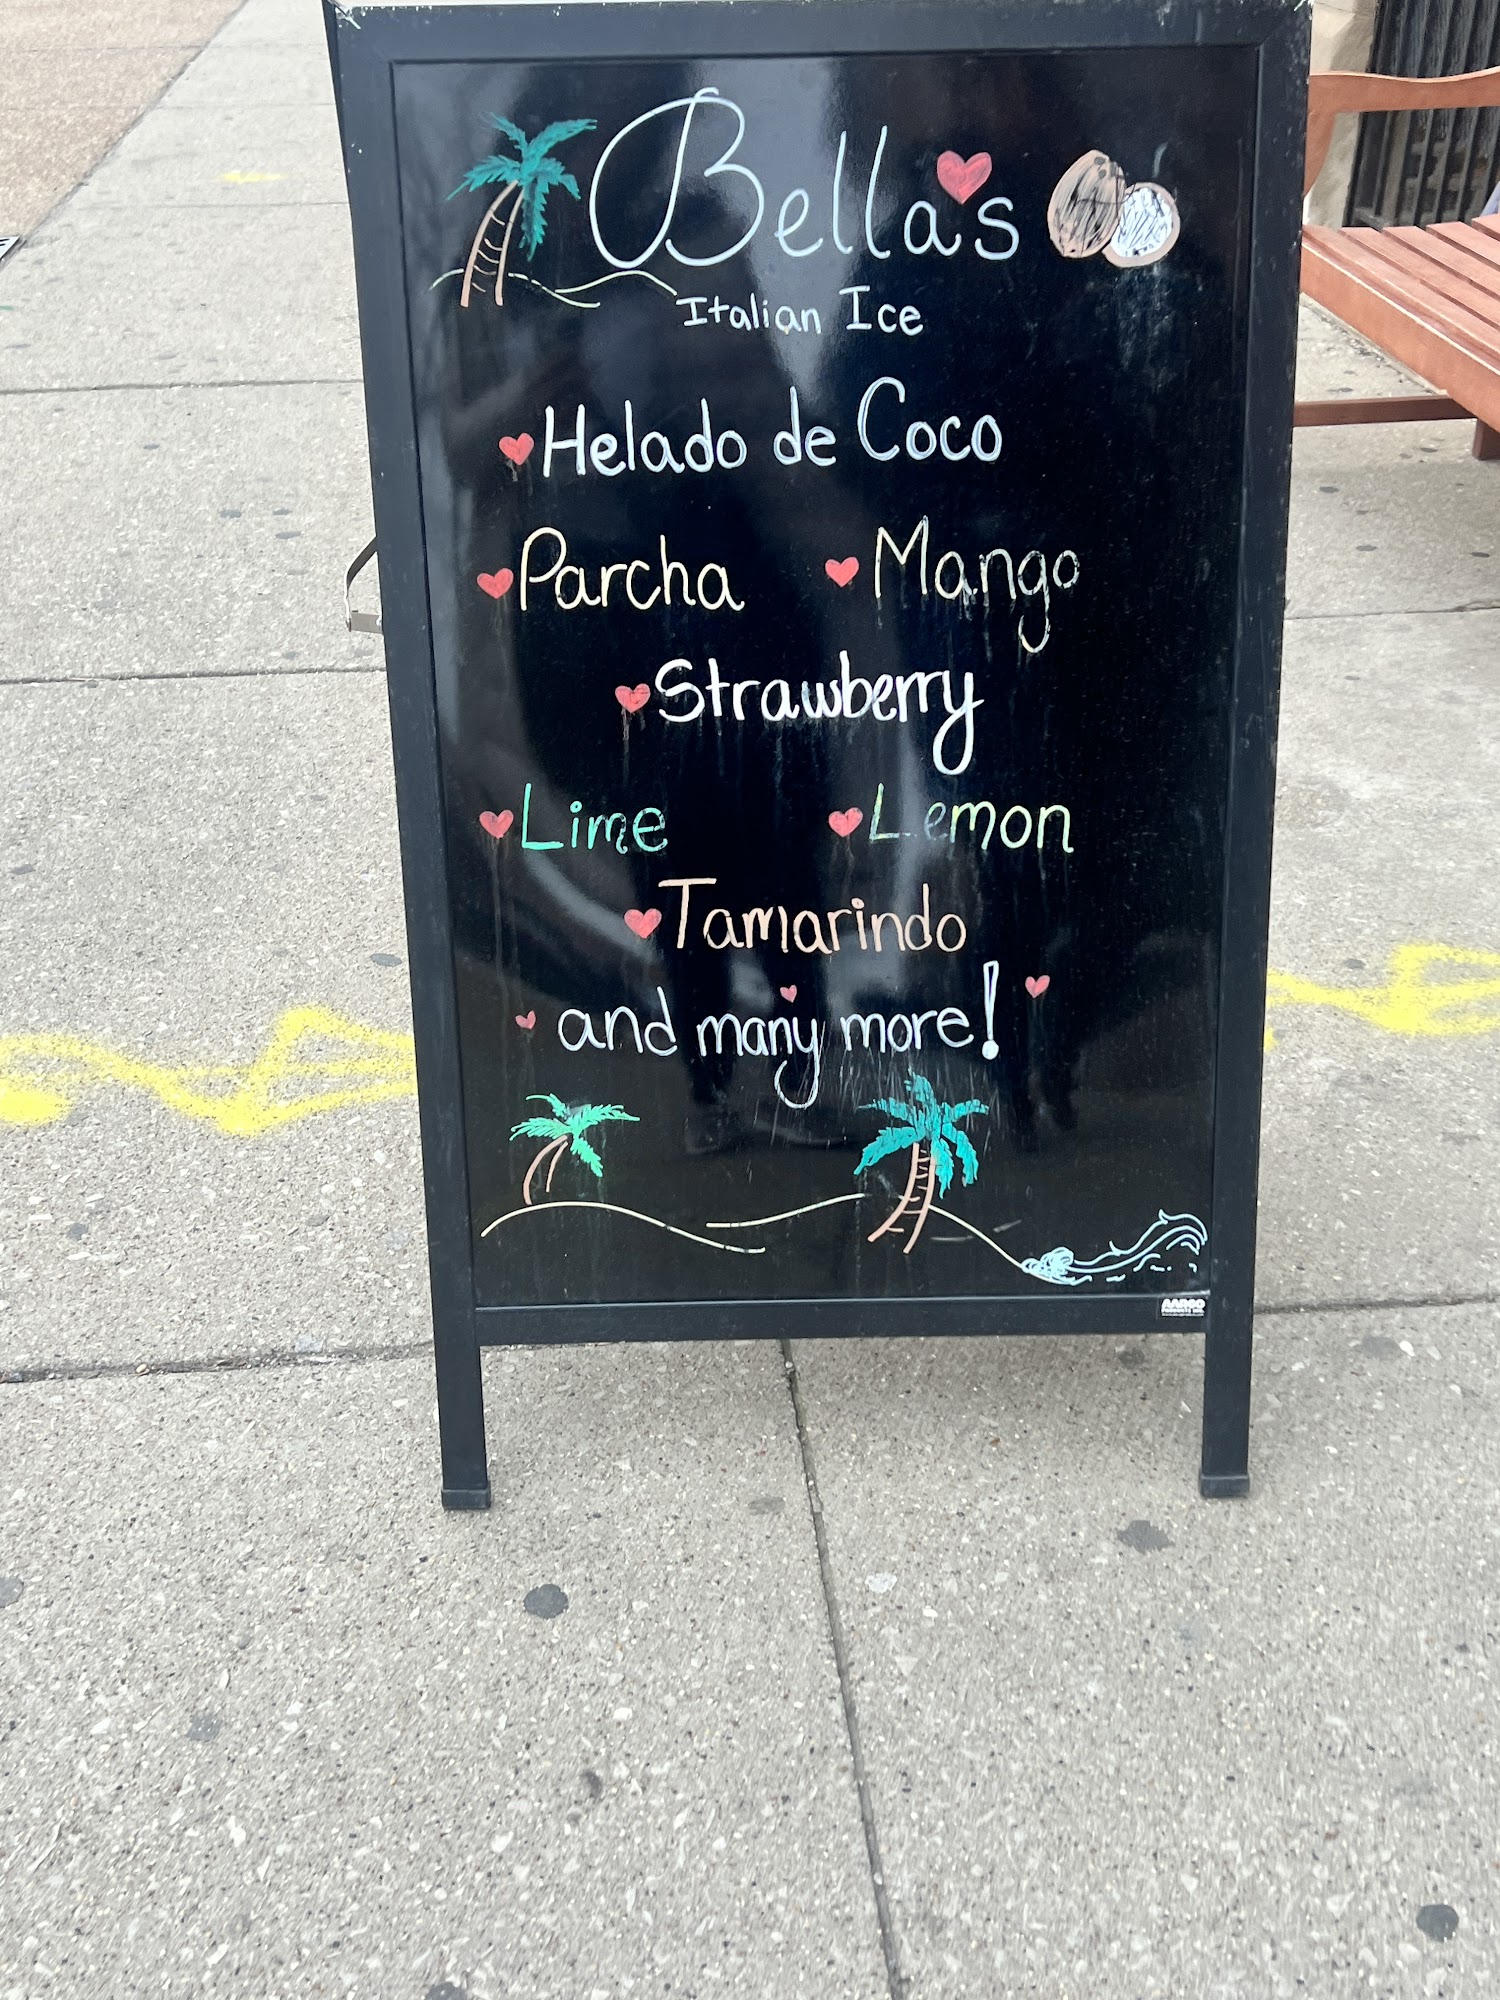 Bella's
Italian Ice
Helado de Coco
Parcha Mango
Strawberry
Lime Lemon
Tamarindo
and many more!
AARCO